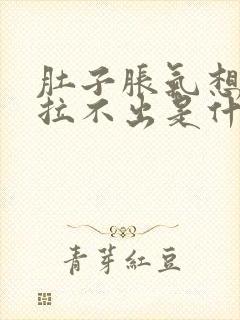 肚子胀氣想
拉不出是什
青芽紅豆